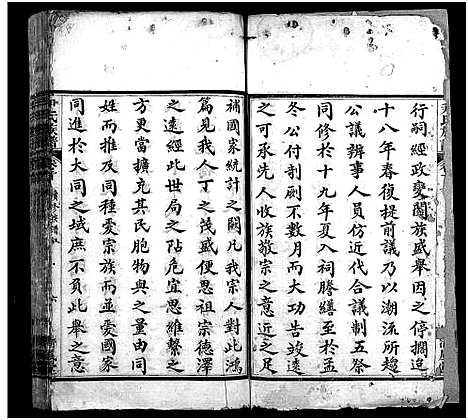 行祠經政變闔族盛舉因之停擱迨
十八年春復提前議乃以潮流所趨
公議辦事人員仿近代合議制五祭
同修於十九年夏入祠謄繕至於孟
冬公付剞劂不數月而大功告竣遠
之可承先人收族敬宗之意近之足
補國家統計之闕凡我宗人對此鴻
篇見我人丁之茂盛便思祖宗德澤
之遠經此世局之阽危宜思維繫之
方更當擴充其民胞物與之量由同
姓而推及同種愛宗族而並愛國家
同進於大同之域庶不負此舉之意